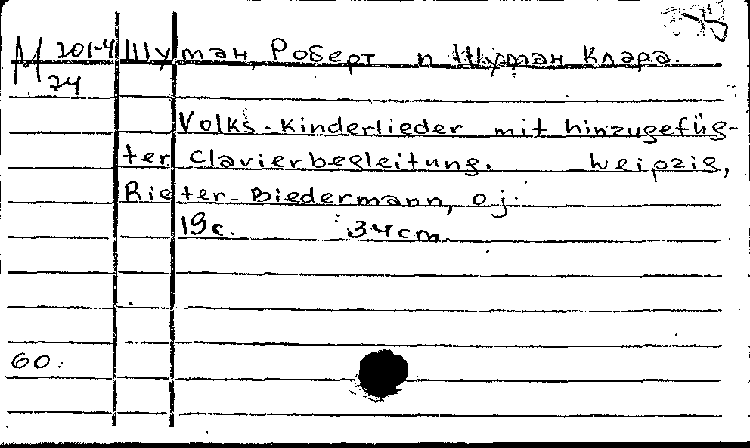 М 201-4 Шуман, Роберт п Шуман Клара.
24
Volks-Kinderlieder mit hinzugefüg-
ter Clavierbegleitung. Leipzig,
Rieter-Biedermann, o.j.
19c. 34cm.
60.